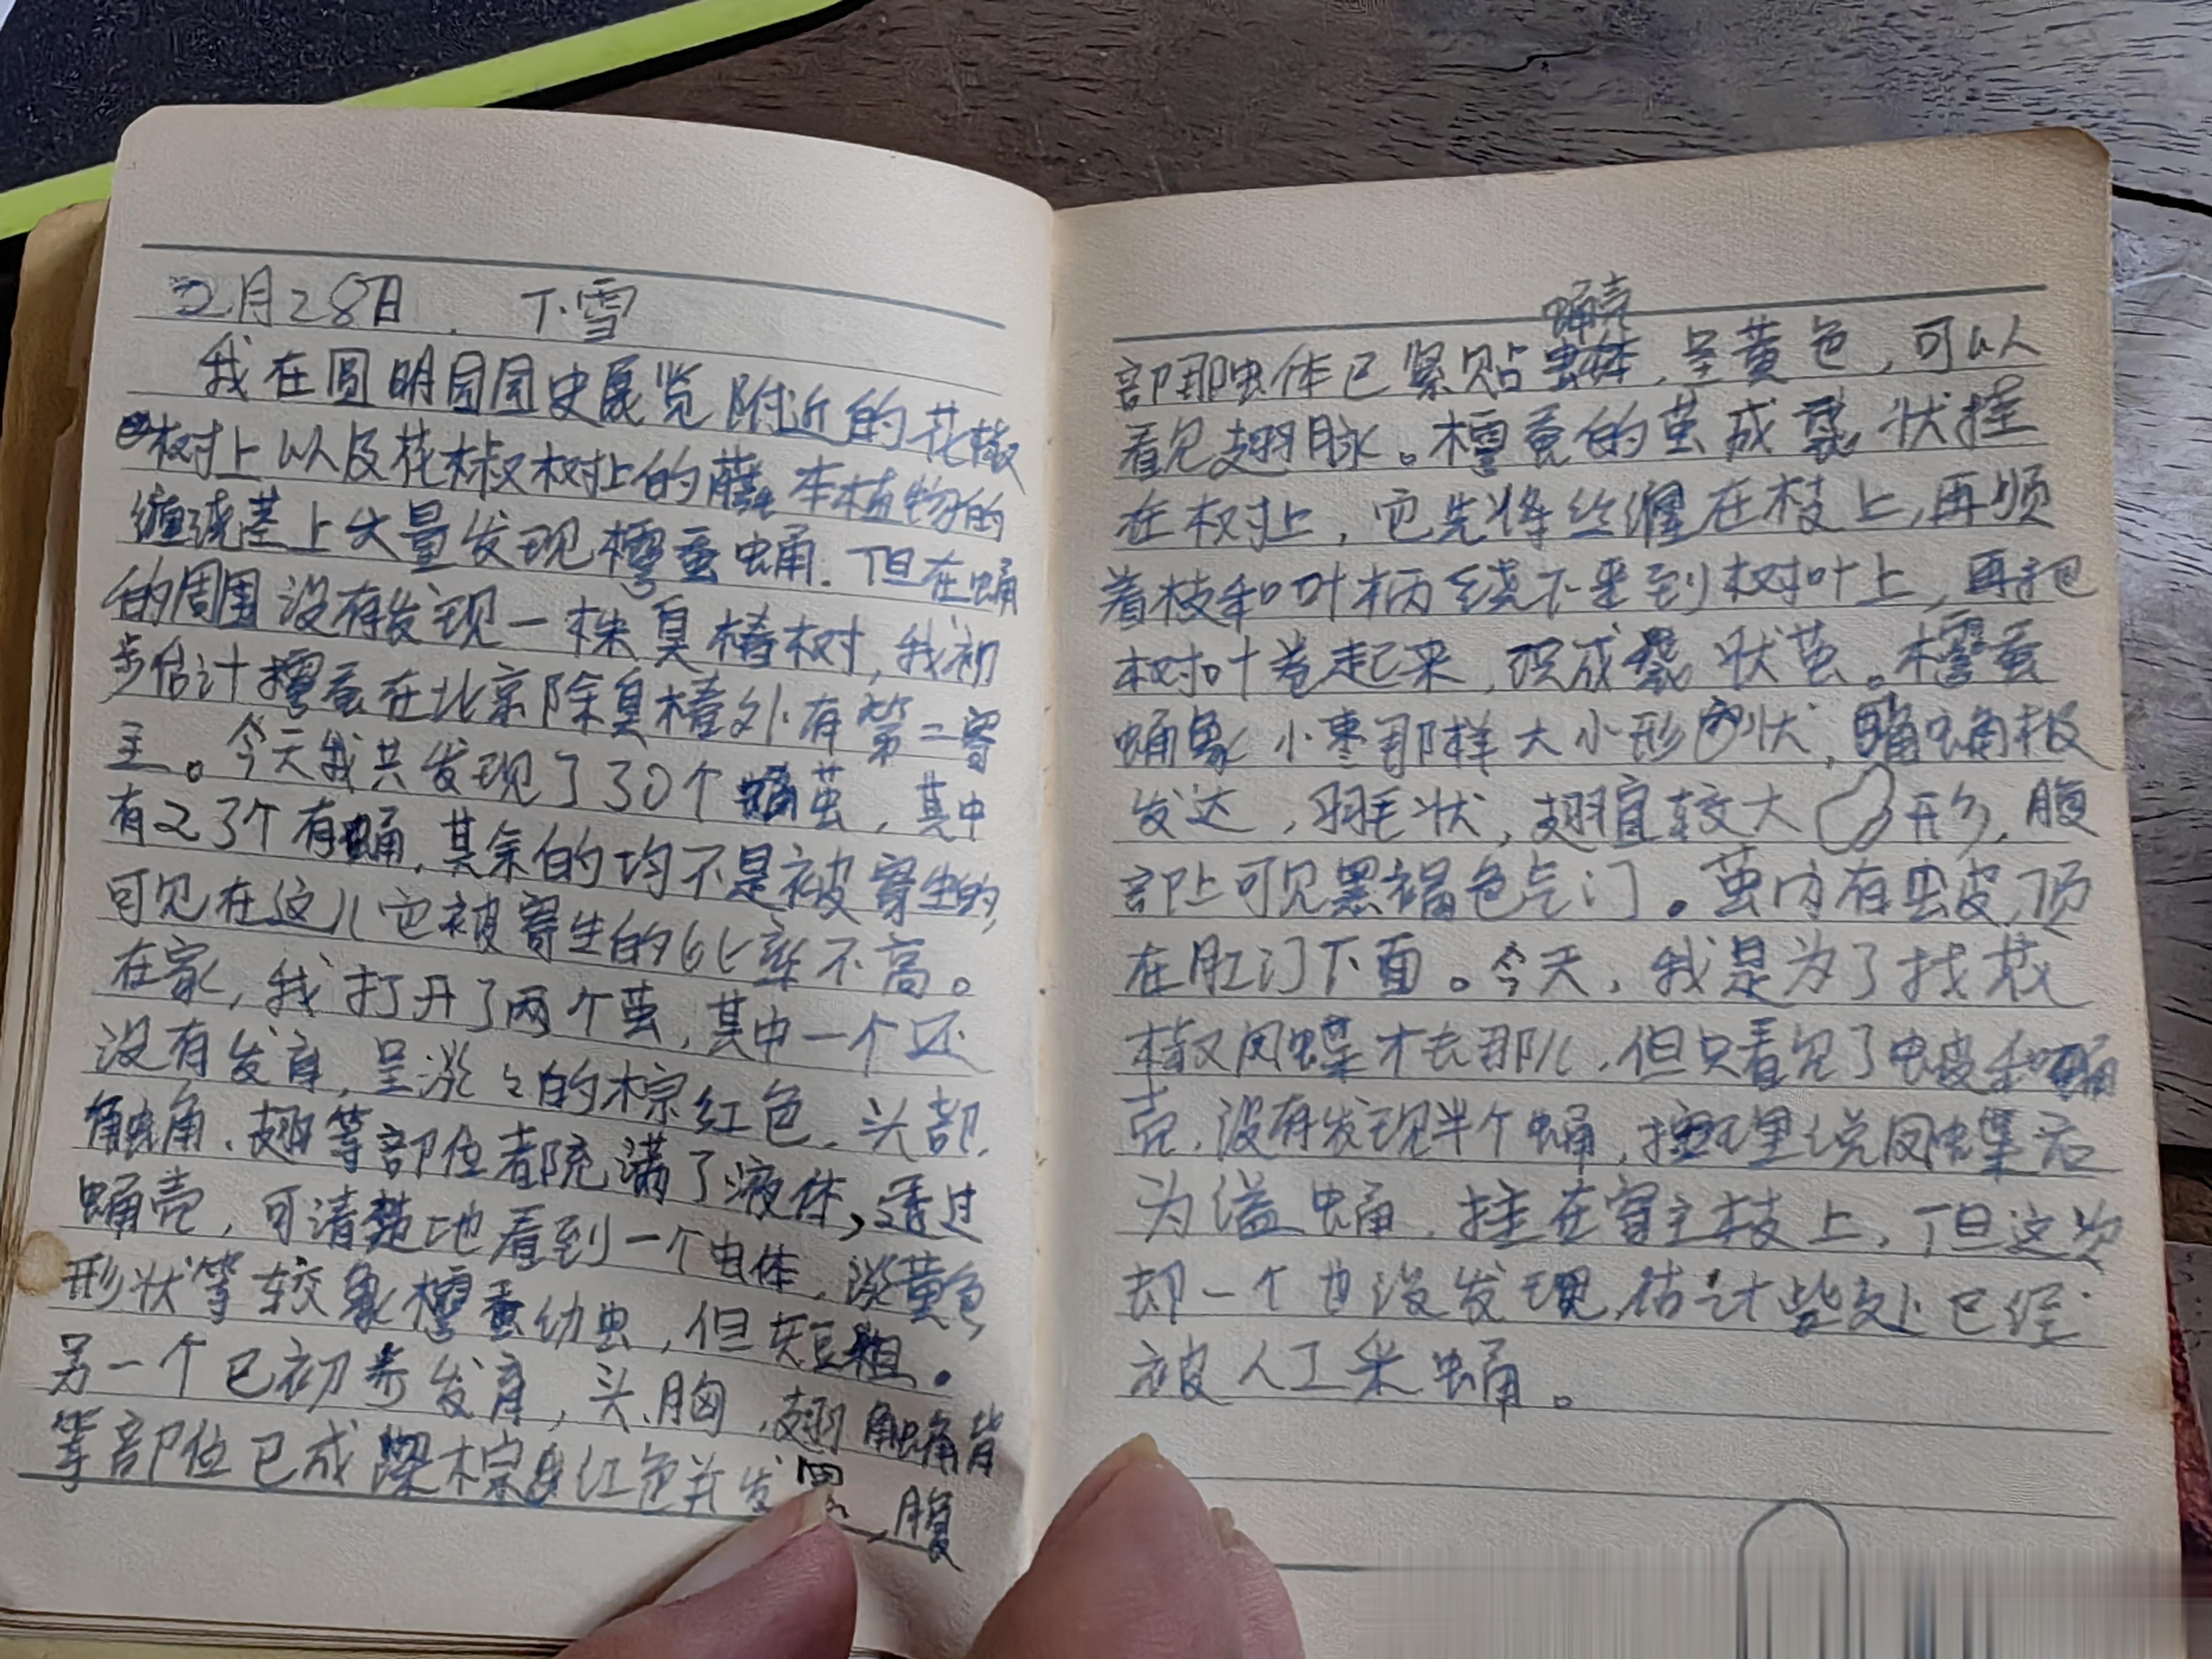 2月28日. 下雪
我在圆明园园史展览附近的花椒
树上以及花椒树上的藤本植物的
缠绕茎上大量发现樗蚕蛹.但在蛹
的周围没有发现一株臭椿树,我初
步估计樗蚕在北京除臭椿外有第二寄
主。今天我共发现了30个蛹茧,其中
有23个有蛹,其余的均不是被寄生的,
可见在这儿它被寄生的比率不高。
在家,我打开了两个茧,其中一个还
没有发育,呈淡々的棕红色,头部、
触角、翅等部位都充满了液体,透过
蛹壳,可清楚地看到一个虫体,淡黄色,
形状等较象樗蚕幼虫,但短粗。
另一个已初步发育,头、胸、翅触角背
等部位已成深棕红色并发黑,腹
蛹壳
部那虫体已紧贴,呈黄色,可以
看见翅脉。樗蚕的茧成袋状挂
在树上,它先将丝缠在枝上,再顺
着枝和叶柄绕下来到树叶上,再把
树叶卷起来,织成袋状茧。樗蚕
蛹象小枣那样大小形状,蛹触角极
发达,羽毛状,翅宜较大形,腹
部上可见黑褐色气门。茧内有虫皮,顶
在肛门下面。今天,我是为了找花
椒凤蝶才去那儿,但只看见了虫皮和蛹
壳,没有发现半个蛹,按理说凤蝶应
为缢蛹,挂在寄主枝上,但这次
却一个也没发现,估计些处已经
被人工采蛹。